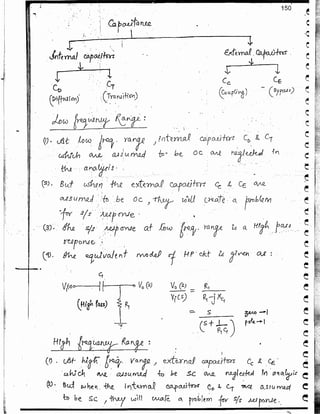 150
Capacitance
Internal capacitors
External Capacitor
CD
CT
CC
CE
(Diffusion)
(Transition)
(Coupling)
(Bypass)
Low frequency Range :
(1). At low freq. range , internal capacitors CD & CT
which are assumed to be OC are neglected in
the analysis.
(2). But when the external capacitors CC & CE are
assumed to be OC , they will create a problem
for o/p response .
(3). The o/p response at low freq. range is a High pass
response .
(4). The equivalent model of HP ckt is given as :
C1
Vi(s)
V0 (s)
(High pass)
R1
V0 (s) / Vi(s) = R1 / R1 - jXC1
= S / (S + 1/R1C1)
zero → 1
pole → 1
High frequency Range :
(1). At high freq. range , external capacitors CC & CE
which are assumed to be SC are neglected in analysis
(2). But when the internal capacitor CD & CT are assumed
to be SC , they will create a problem for o/p response.